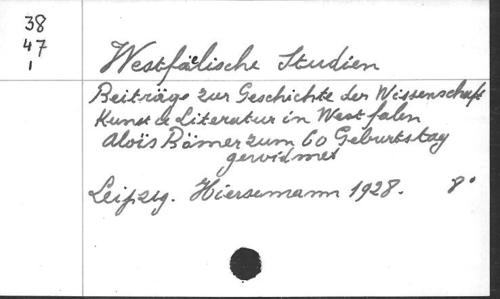 38
47
1
Westfälische Studien
Beiträge zur Geschichte der Wissenschaft
Kunst & Literatur in Westfalen
Aloïs Bömer zum 60 Geburtstag
gewidmet
Leipzig. Hiersemann 1928. 8°